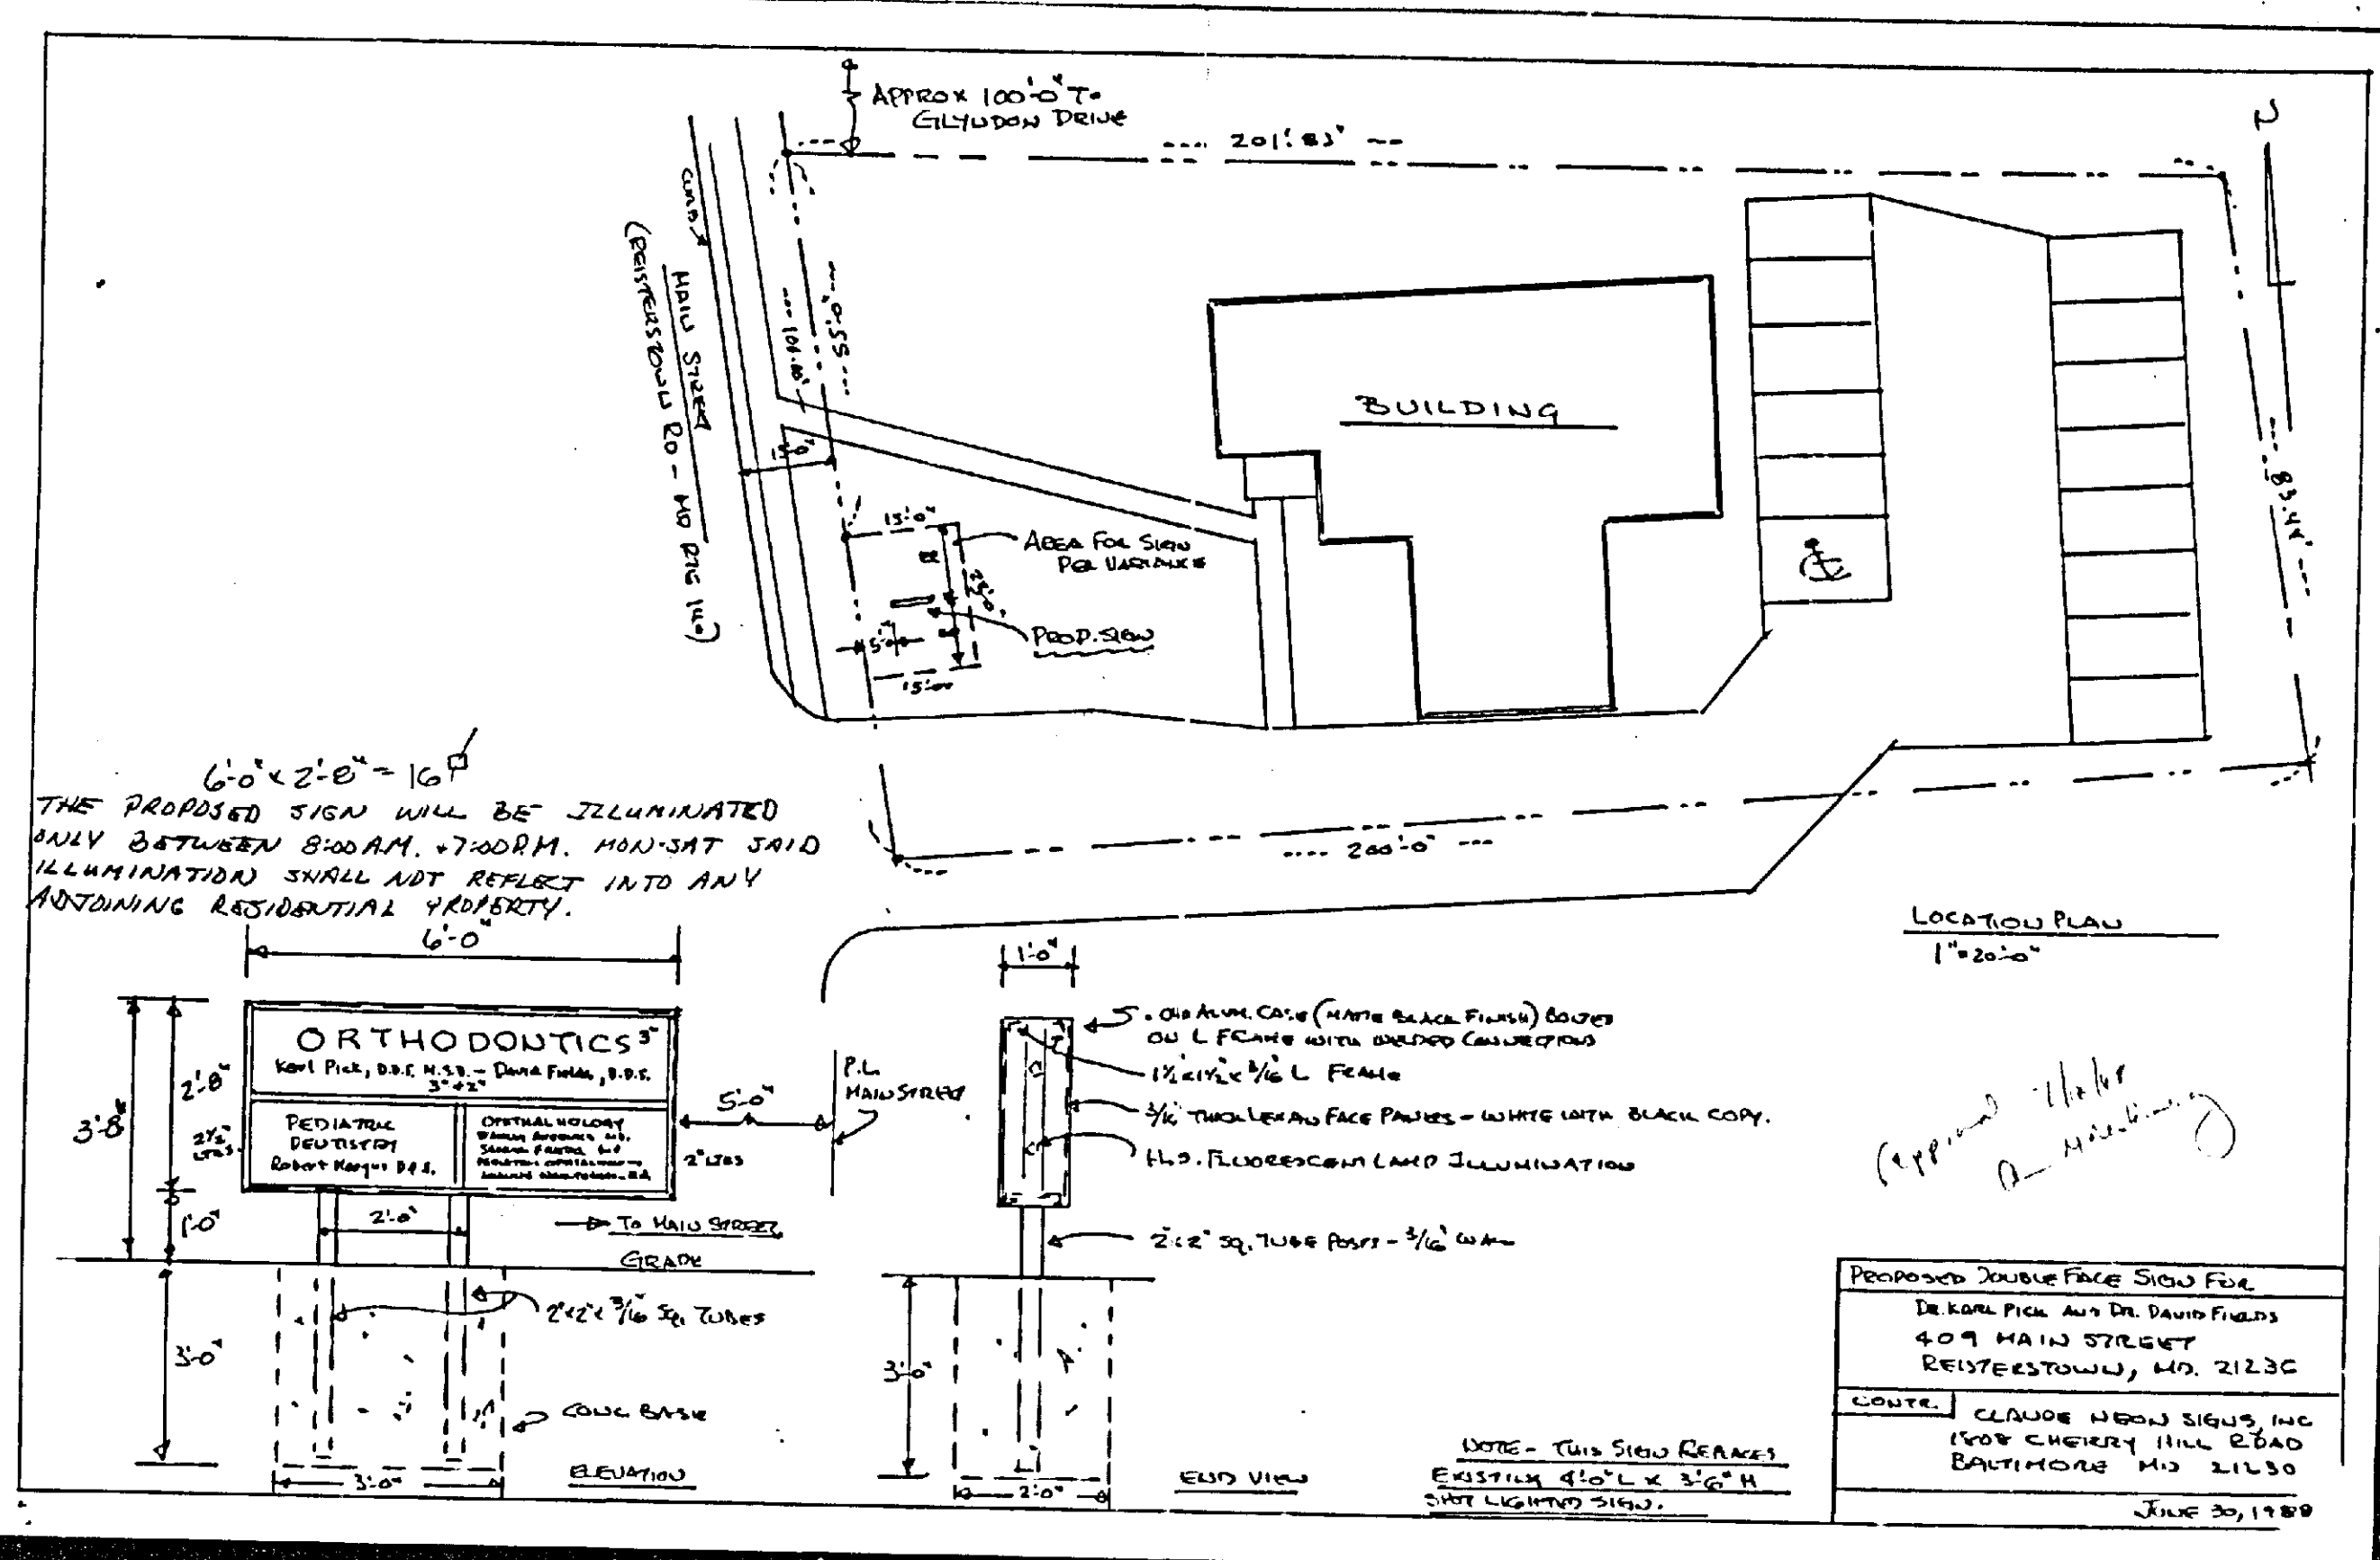 APPROX 100'-0" TO
GLYNDON DRIVE
201'.83"
N
CURB
MAIN STREET
(REISTERSTOWN RD - MD RTE 140)
55'-0"
101.00'
BUILDING
83.44'
15'-0"
AREA FOR SIGN
PER VARIANCE
PROP. SIGN
5'-0"
15'-0"
200'-0"
LOCATION PLAN
1"=20'-0"
6'-0" x 2'-8" = 16
THE PROPOSED SIGN WILL BE ILLUMINATED
ONLY BETWEEN 8:00 A.M. + 7:00 P.M. MON-SAT SAID
ILLUMINATION SHALL NOT REFLECT INTO ANY
ADJOINING RESIDENTIAL PROPERTY.
6'-0"
3'-8"
2'-8"
1'-0"
3'-0"
ORTHODONTICS 3"
Karl Pick, D.D.S. M.S.D. - David Fields, D.D.S.
3" + 2"
PEDIATRIC
DENTISTRY
2½"
LTRS.
OPHTHALMOLOGY
2" LTRS
5'-0"
P.L.
MAIN STREET
2'-0"
TO MAIN STREET
GRADE
2"x2"x 3/16" SQ. TUBES
CONC BASE
3'-0"
ELEVATION
1'-0"
ALUM. CASE (MATTE BLACK FINISH) BOLTED
ON L FRAME WITH WELDED CONNECTIONS
1½"x1½"x 3/16" L FRAME
3/16" THICK LEXAN FACE PANELS - WHITE WITH BLACK COPY.
H.O. FLUORESCENT LAMP ILLUMINATION
2"x2" SQ. TUBE POSTS - 3/16" WALL
3'-0"
2'-0"
END VIEW
NOTE - THIS SIGN REPLACES
EXISTING 4'-0" L x 3'-6" H
SPOT LIGHTED SIGN.
Approved
PROPOSED DOUBLE FACE SIGN FOR
DR. KARL PICK AND DR. DAVID FIELDS
409 MAIN STREET
REISTERSTOWN, MD. 21236
CONTR.
CLAUDE NEON SIGNS, INC
1808 CHERRY HILL ROAD
BALTIMORE MD 21230
JUNE 30, 1988